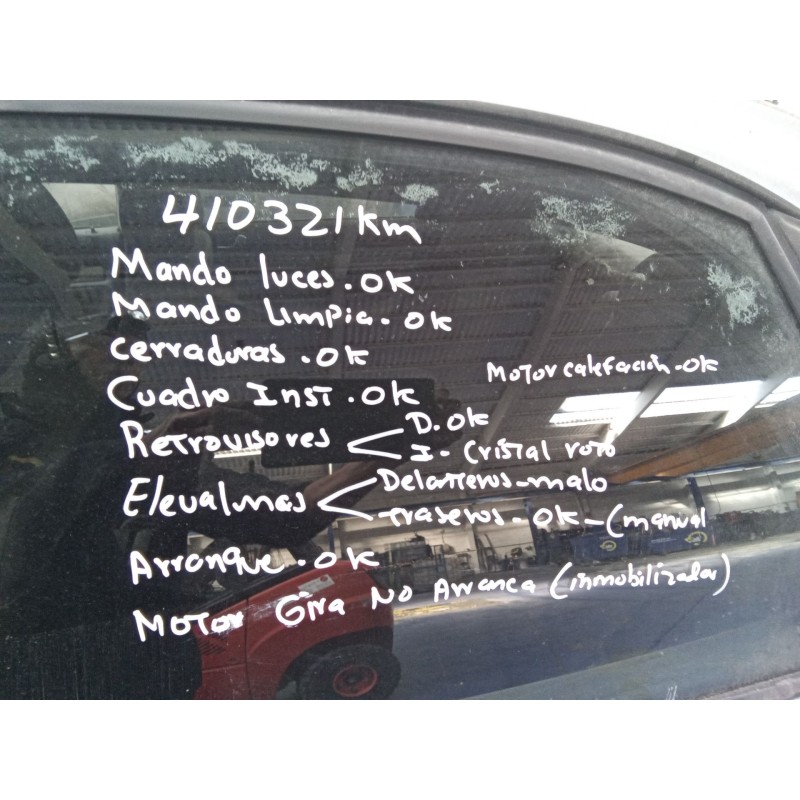 410321 km
Mando luces. OK
Mando Limpia. OK
cerraduras. OK
Motor calefacción. OK
Cuadro Inst. OK
Retrovisores < D. OK
I. Cristal roto
Elevalunas < Delanteros - malo
traseros - OK - (manual
Arranque. OK
Motor Gira NO Arranca (inmobilizador)